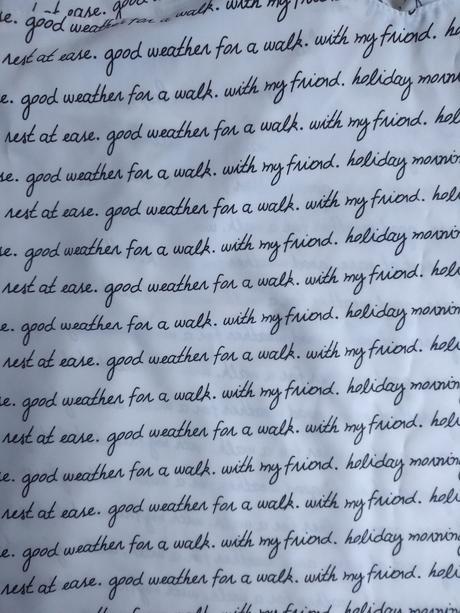 ease. good
good weather for a walk. with my friend
rest at ease. good weather for a walk. with my friend.
good weather for a walk. with my friend. holiday
rest at ease. good weather for a walk. with my friend.
good weather for a walk. with my friend. holiday
rest at ease. good weather for a walk. with my friend.
good weather for a walk. with my friend. holiday
rest at ease. good weather for a walk. with my friend.
good weather for a walk. with my friend. holiday
rest at ease. good weather for a walk. with my friend.
good weather for a walk. with my friend. holiday
rest at ease. good weather for a walk. with my friend.
good weather for a walk. with my friend. holiday
rest at ease. good weather for a walk. with my friend.
good weather for a walk. with my friend. holiday
rest at ease. good weather for a walk. with my friend.
walk. with my friend. holiday